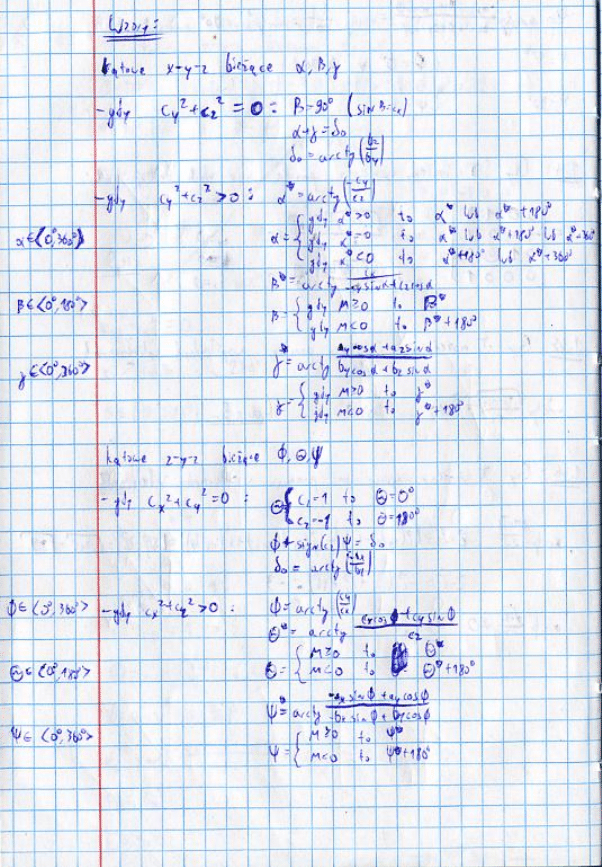 Wzory:
kątowe x-y-z bieżące α, β, γ
- gdy cy² + cz² = 0 : β = 90° (sin β = cx)
α+γ = δ₀
δ₀ = arctg (bz/by)
- gdy cy² + cz² > 0 : α* = arctg (-cy/cz)
α∈<0°,360°) α = { gdy α*>0 to α* lub α*+180°
gdy α*=0 to α* lub α*+180° lub α*+360°
gdy α*<0 to α*+180° lub α*+360°
β* = arctg cx/(-cy sinα + cz cosα)
β∈<0°,180°> β = { gdy M≥0 to β*
gdy M<0 to β*+180°
γ∈<0°,360°> γ* = arctg (ay cosα + az sinα)/(by cosα + bz sinα)
γ = { gdy M>0 to γ*
gdy M<0 to γ*+180°
kątowe z-y-z bieżące ϕ, Θ, Ψ
- gdy cx² + cy² = 0 : Θ = { cz=1 to Θ=0°
cz=-1 to Θ=180°
ϕ + sign(cz) Ψ = δ₀
δ₀ = arctg
ϕ∈<0°,360°> - gdy cx² + cy² > 0 : ϕ = arctg (cy/cx)
Θ* = arctg (cx cosϕ + cy sinϕ)/cz
Θ∈<0°,180°> Θ = { M≥0 to Θ*
M<0 to Θ*+180°
Ψ* = arctg (-ax sinϕ + ay cosϕ)/(-bx sinϕ + by cosϕ)
Ψ∈<0°,360°> Ψ = { M≥0 to Ψ*
M<0 to Ψ*+180°